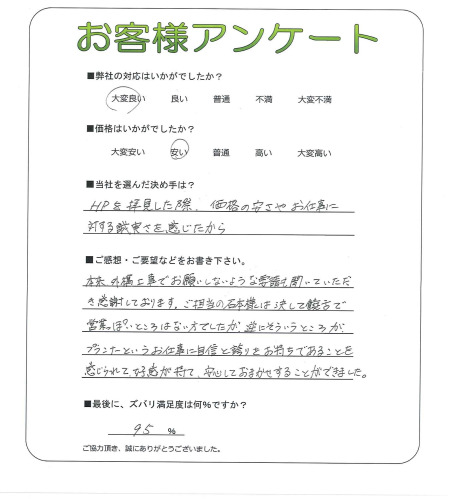 お客様アンケート
■弊社の対応はいかがでしたか？
大変良い 良い 普通 不満 大変不満
■価格はいかがでしたか？
大変安い 安い 普通 高い 大変高い
■当社を選んだ決め手は？
HPを拝見した際、価格の安さやお仕事に
対する誠実さを感じたから
■ご感想・ご要望などをお書き下さい。
本来外構工事でお願いしないような要請も聞いていただ
き感謝しております。ご担当の石本様は決して饒舌で
営業っぽいところはない方でしたが、逆にそういうところが
プランナーというお仕事に自信と誇りをお持ちであることを
感じられて、好感が持て、安心しておまかせすることができました。
■最後に、ズバリ満足度は何％ですか？
95 ％
ご協力頂き、誠にありがとうございました。